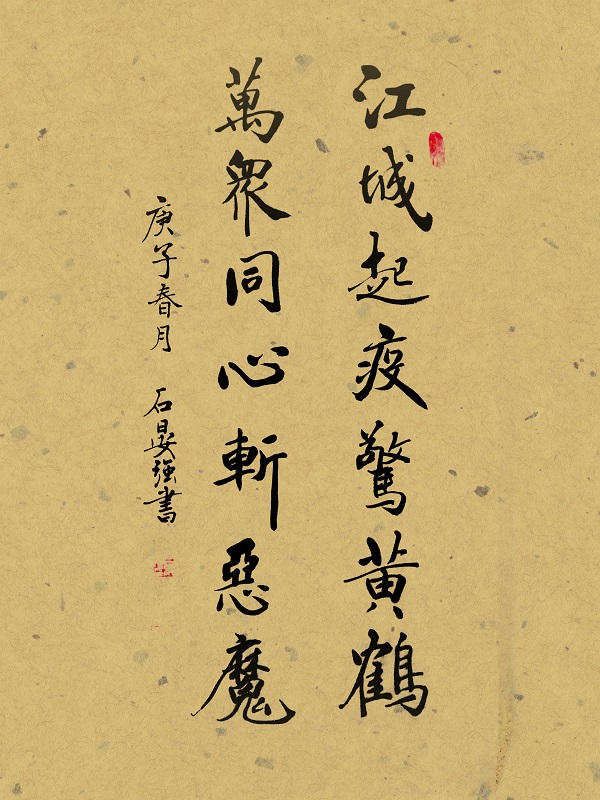 江城起疫驚黃鶴
萬衆同心斬惡魔
庚子春月 石晏強書